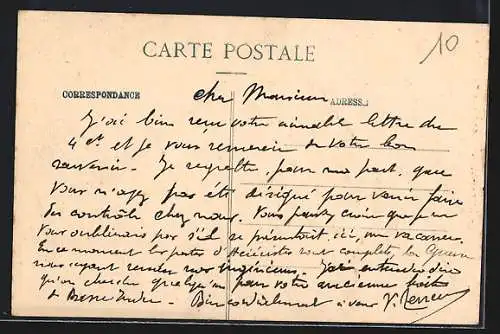 CARTE POSTALE
10
CORRESPONDANCE
ADRESSE
cher Monsieur
J'ai bien reçu votre aimable lettre du
4 ct et je vous remercie de votre bon
souvenir. Je regrette, pour ma part, que
vous n'ayez pas été désigné pour venir faire
du contrôle chez nous. Vous pouvez croire que je ne
vous oublierais pas s'il se présentait ici, une vacance.
En ce moment les postes d' sont complets, la Guerre
nous ayant nos ingénieurs. J'ai entendu dire
qu'on cherche quelqu'un pour votre ancienne
de Basse Indre. Bien cordialement à vous